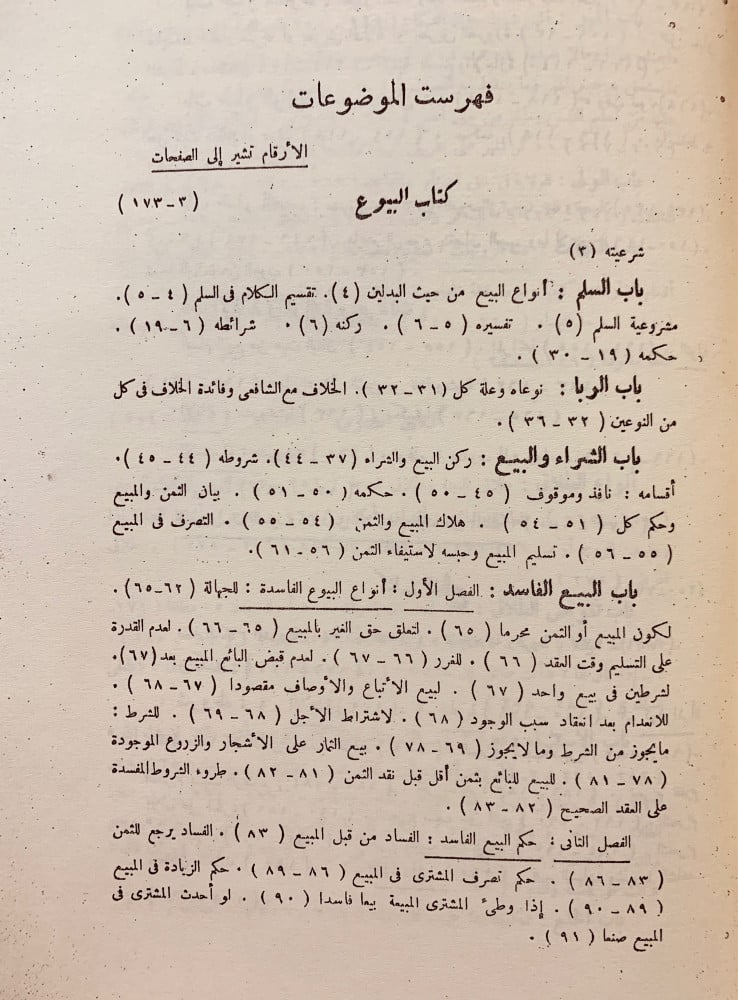 فهرست الموضوعات
الأرقام تشير إلى الصفحات
كتاب البيوع (٣ - ١٧٣)
شرعيته (٣)
باب السلم : أنواع البيع من حيث البدلين (٤). تقسيم الكلام فى السلم (٤ - ٥).
مشروعية السلم (٥) . تفسيره (٥ - ٦) . ركنه (٦) . شرائطه (٦ - ١٩) .
حكمه (١٩ - ٣٠) .
باب الربا : نوعاه وعلة كل (٣١ - ٣٢). الخلاف مع الشافعى وفائدة الخلاف فى كل
من النوعين (٣٢ - ٣٦) .
باب الشراء والبيع : ركن البيع والشراء (٣٧ - ٤٤). شروطه (٤٤ - ٤٥).
أقسامه : نافذ وموقوف (٤٥ - ٥٠) . حكمه (٥٠ - ٥١) . بيان الثمن والمبيع
وحكم كل (٥١ - ٥٤) . هلاك المبيع والثمن (٥٤ - ٥٥) . التصرف فى المبيع
(٥٥ - ٥٦) . تسليم المبيع وحبسه لاستيفاء الثمن (٥٦ - ٦١).
باب البيع الفاسد : الفصل الأول : أنواع البيوع الفاسدة : للجهالة (٦٢-٦٥) .
لكون المبيع أو الثمن محرما (٦٥) . لتعلق حق الغير بالمبيع (٦٥ - ٦٦) . لعدم القدرة
على التسليم وقت العقد (٦٦) . للغرر (٦٦ - ٦٧) . لعدم قبض البائع المبيع بعد (٦٧).
لشرطين فى بيع واحد (٦٧) . لبيع الأتباع والأوصاف مقصودا (٦٧ - ٦٨) .
للانعدام بعد انعقاد سبب الوجود (٦٨) . لاشتراط الأجل (٦٨ - ٦٩) . للشرط :
مايجوز من الشرط وما لايجوز (٦٩ - ٧٨) . بيع الثمار على الأشجار والزروع الموجودة
(٧٨ - ٨١) . للبيع للبائع بثمن أقل قبل نقد الثمن (٨١ - ٨٢) . طروء الشروط المفسدة
على العقد الصحيح (٨٢ - ٨٣) .
الفصل الثانى : حكم البيع الفاسد : الفساد من قبل المبيع (٨٣) . الفساد يرجع للثمن
(٨٣ - ٨٦) . حكم تصرف المشترى فى المبيع (٨٦ - ٨٩) . حكم الزيادة فى المبيع
(٨٩ - ٩٠) . إذا وطىء المشترى المبيعة بيعا فاسدا (٩٠) . لو أحدث المشترى فى
المبيع صنعا (٩١) .